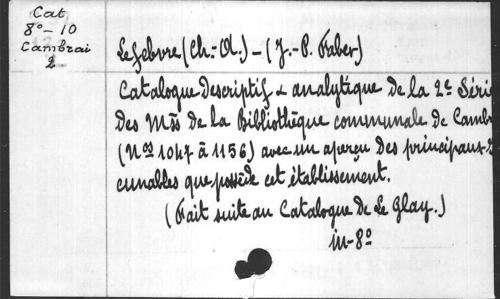 Cat
8º-10
Cambrai
2
Lefebvre (Ch.-A.) - (J.-P. Faber)
Catalogue Descriptif & analytique de la 2e Série
Des Mss de la Bibliothèque communale de Camb
(Nos 1047 à 1156) avec un aperçu des principaux
cunables que possède cet établissement.
(Fait suite au Catalogue de Le Glay.)
in-8º